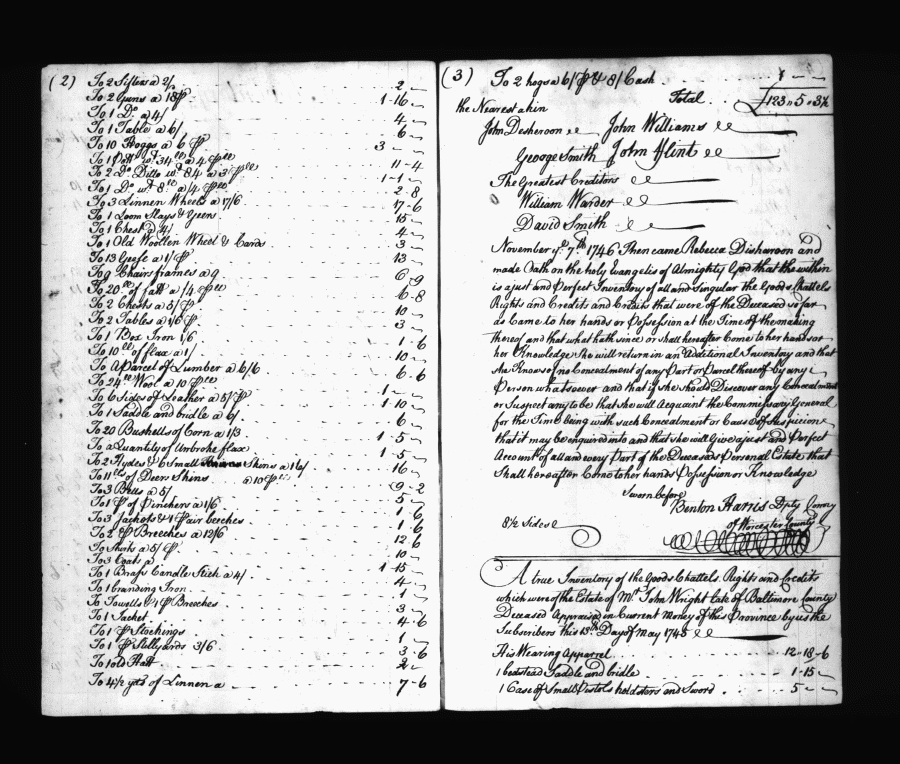 (2)
To 2 Sifters a 2/ . . . 2 "
To 2 guns a 18 P . . . 1 - 16 "
To 1 Do. a 4/ . . . 4 "
To 1 Table a 6/ . . . 6 "
To 10 Hoggs a 6 P . . . 3 "
To 1 Pott wt. 34 lb a 4 P lb . . . 11 - 4
To 2 Do. Ditto wt. 84 a 3 P lb . . . 1 - 1 "
To 1 Do. wt 8 lb a/4 P lb . . . 2 - 8
To 3 Linnen Wheels a 7/6 . . . 17 - 6
To 1 Loom Slays & Geers . . . 15 "
To 1 Chest a 4/ . . . 4 "
To 1 Old Woollen Wheel & Cards . . . 3 "
To 13 Geese a 1/ P . . . 13 "
To 9 Chairs frames a 9 . . . 6 - 9
To 20 lb of fatt a /4 P lb . . . 6 - 8
To 2 Chests a 5/ P . . . 10 "
To 2 Tables a 1/6 P . . . 3 "
To 1 Box Iron 1/6 . . . 1 - 6
To 10 lb of flax a 1/ . . . 10 "
To A Parcel of Lumber a 6/6 . . . 6 - 6
To 24 lb Wool a 10 P lb . . . 1 "
To 6 Sides of Leather a 5/ P . . . 1 - 10 "
To 1 Saddle and bridle a 6/ . . . 6 "
To 20 Bushells of Corn a 1/3 . . . 1 - 5 "
To a Quantity of Unbroke flax . . . 1 - 5 "
To 2 Hydes & 6 Small Skins a 16/ . . . 16 "
To 11 lb of Deer Skins a 10 P lb . . . 9 - 2
To 3 Bells a 5/ . . . 5 "
To 1 P of Pinchers a 1/6 . . . 1 - 6
To 3 Jackots & 1 Pair beeches . . . 1 - 6
To 2 P Breeches a 12/6 . . . 12 - 6
To Shirts a 5/ P . . . 10 "
To 3 Coats a . . . 1 - 15 "
To 1 Brass Candle Stick a 4/ . . . 4 "
To 1 branding Iron . . . 1 "
To Towells & 1 P Breeches . . . 3 "
To 1 Jacket . . . 4 - 6
To 1 P Stockings . . . 1 "
To 1 P Stillyards 3/6 . . . 3 - 6
To 1 old Hatt . . . 2 "
To 4 1/2 yds of Linnen a . . . 7 - 6
(3)
To 2 hogs a 6/ P & 8/ Cash . . . 1 " "
Total . . . £123 " 5 " 3 1/2
the Nearest a kin
John Desheroon John Williams
George Smith John Flint
The Greatest Creditors
William Warder
David Smith
November ye. 7th. 1746 Then came Rebecca Disharoon and
made Oath on the holy Evangelis of Almighty God that the within
is a just and Perfect Inventory of all and Singular the Goods Chattels
Rights and Credits and Credits that were of the Deceased so far
as Came to her hands or Possession at the Time of the making
thereof and that what hath since or shall hereafter Come to her hands or
her Knowledge She will return in an Additional Inventory and that
she Knows of no Concealment of any Part or Parcel thereof by any
Person whatsoever and that if she should Discover any Concealment
or Suspect any to be that she will Acquaint the Commissary General
for the Time being with such Concealment or Cause of Suspicion
that it may be enquired into and that she will Give a just and Perfect
Account of all and every Part of the Deceased Personal Estate that
Shall hereafter Come to her hands Possession or Knowledge
Sworn before
Benton Harris Dpty Comry
of Worcester County
8 1/2 Sides
A true Inventory of the Goods Chattels Rights and Credits
which were of the Estate of Mr. John Wright late of Baltimore County
Deceased Appraised in Current Money of this Province by us the
Subscribers this 13th Day of May 1745
His Wearing Apparrel . . . 12 - 18 - 6
1 bedstead Saddle and bridle . . . 1 - 15 "
1 Case of Small Pistols holdsters and Sword . . . 5 " "